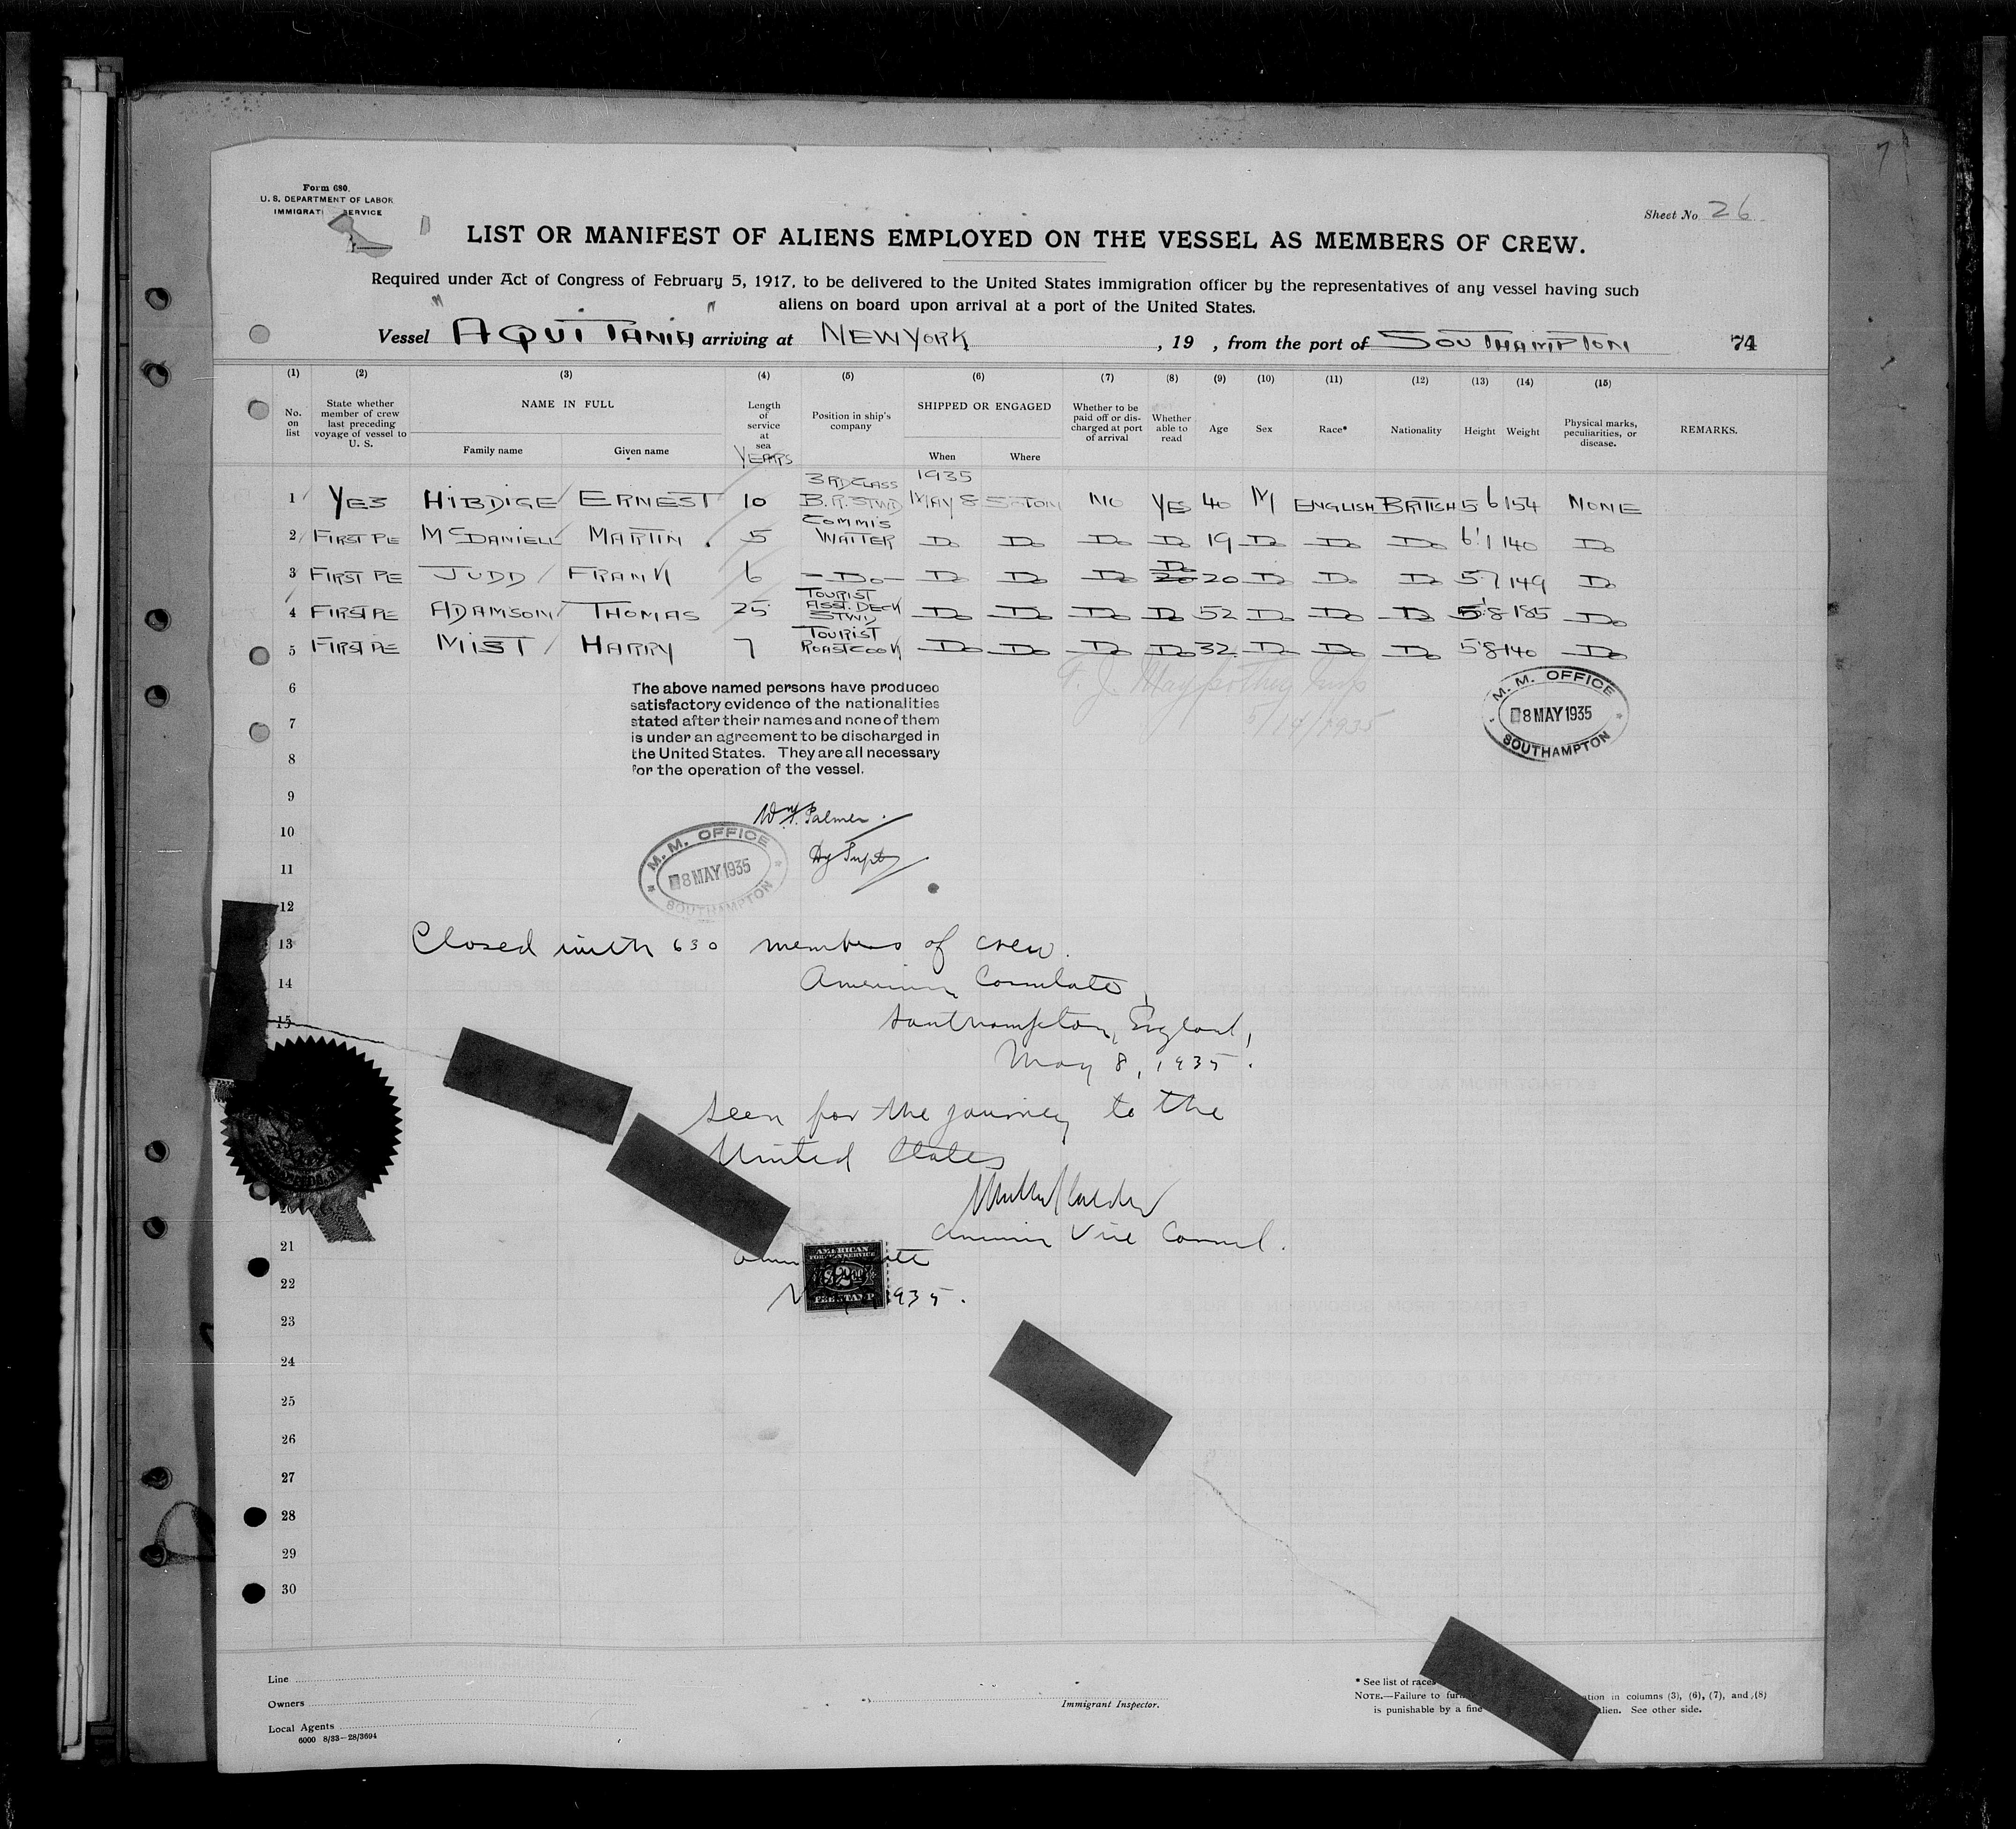 Form 680.
U. S. DEPARTMENT OF LABOR
IMMIGRATI SERVICE
Sheet No. 26
LIST OR MANIFEST OF ALIENS EMPLOYED ON THE VESSEL AS MEMBERS OF CREW.
Required under Act of Congress of February 5, 1917, to be delivered to the United States immigration officer by the representatives of any vessel having such
aliens on board upon arrival at a port of the United States.
Vessel "AQUITANIA" arriving at NEW YORK, 19 , from the port of SOUTHAMPTON 74
(1) (2) (3) (4) (5) (6) (7) (8) (9) (10) (11) (12) (13) (14) (15)
No. on list
State whether member of crew last preceding voyage of vessel to U. S.
NAME IN FULL
Family name
Given name
Length of service at sea
YEARS
Position in ship's company
SHIPPED OR ENGAGED
When
Where
Whether to be paid off or discharged at port of arrival
Whether able to read
Age
Sex
Race*
Nationality
Height
Weight
Physical marks, peculiarities, or disease.
REMARKS.
1 YES HIBDIGE ERNEST 10 3RD CLASS B.R. STWD 1935 MAY 8 S-TON NO YES 40 M ENGLISH BRITISH 5 6 154 NONE
2 FIRST PE McDANIELL MARTIN . 5 COMMIS WAITER Do Do Do Do 19 Do Do Do 6'1 140 Do
3 FIRST PE JUDD FRANK 6 -Do- Do Do Do Do 20 Do Do Do 5'7 149 Do
4 FIRST PE ADAMSON THOMAS 25 TOURIST ASST. DECK STWD Do Do Do Do 52 Do Do Do 5'8 185 Do
5 FIRST PE MIST HARRY 7 TOURIST ROAST COOK Do Do Do Do 32 Do Do Do 5'8 140 Do
6
7
8
9
10
11
12
13
14
15
21
22
23
24
25
26
27
28
29
30
The above named persons have produced
satisfactory evidence of the nationalities
stated after their names and none of them
is under an agreement to be discharged in
the United States. They are all necessary
for the operation of the vessel.
5/14/1935
M. M. OFFICE
8 MAY 1935
SOUTHAMPTON
Palmer.
Dy Supt
M. M. OFFICE
8 MAY 1935
SOUTHAMPTON
Closed with 630 members of crew.
American Consulate,
Southampton, England,
May 8, 1935.
Seen for the journey to the
United States
American Vice Consul.
AMERICAN
FOREIGN SERVICE
FEE STAMP
1935.
Line
Owners
Local Agents
6000 8/33-28/3694
Immigrant Inspector.
* See list of races
NOTE.—Failure to furn ation in columns (3), (6), (7), and (8)
is punishable by a fine alien. See other side.